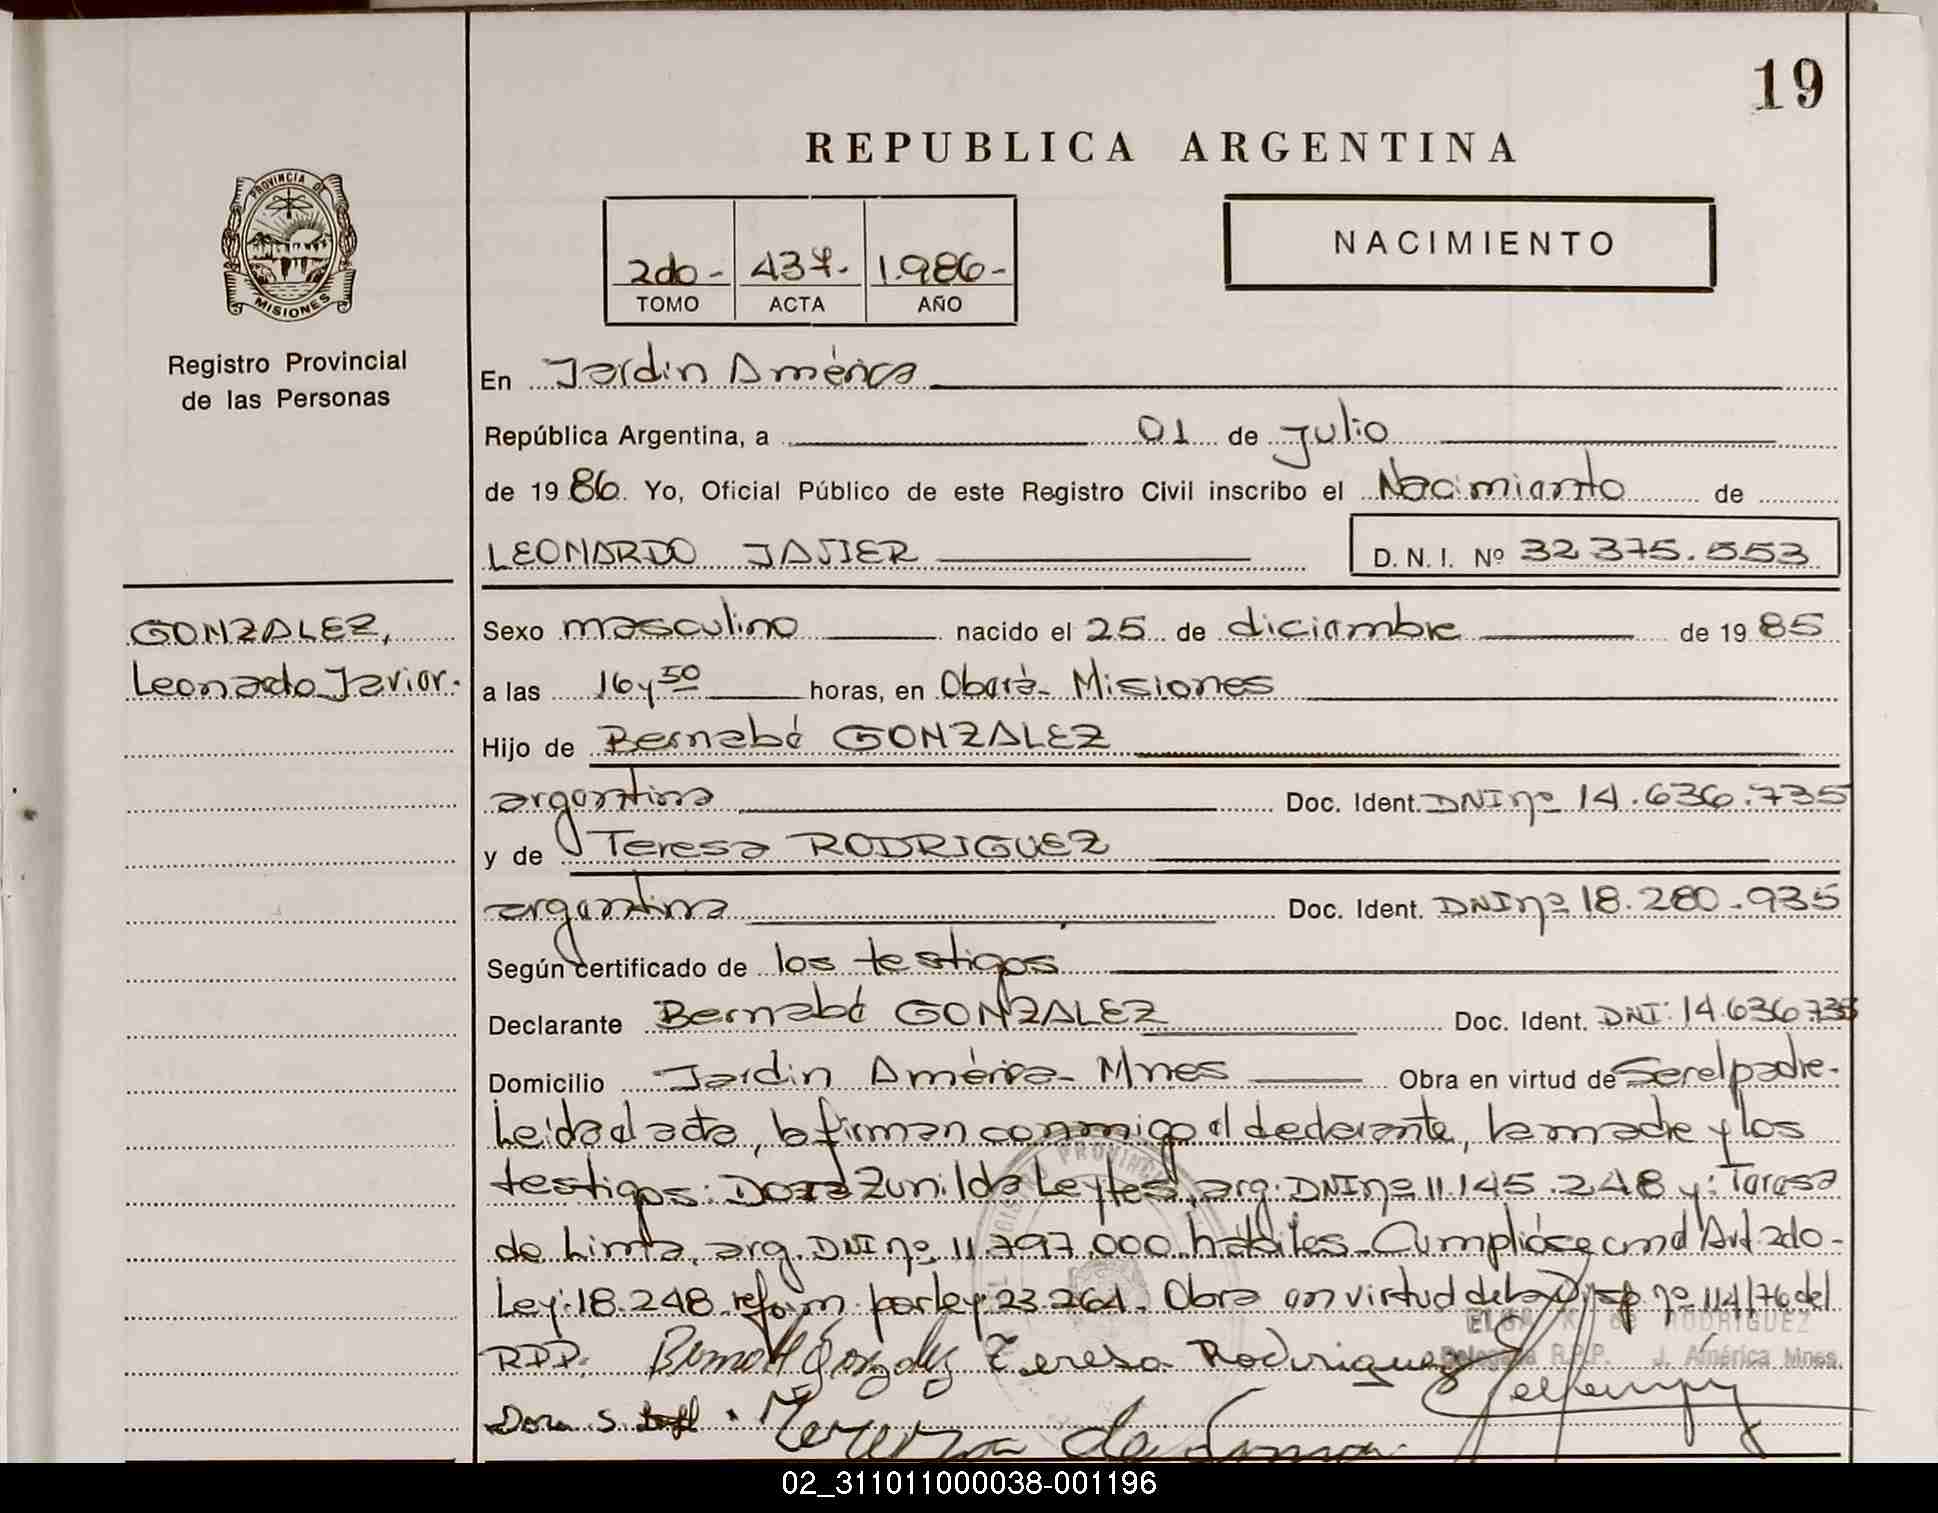 19
REPUBLICA ARGENTINA
PROVINCIA DE
MISIONES
Registro Provincial
de las Personas
2do - 437. 1.986-
TOMO ACTA AÑO
NACIMIENTO
En Jardín América
República Argentina, a 01 de Julio
de 1986. Yo, Oficial Público de este Registro Civil inscribo el Nacimiento de
LEONARDO JAVIER D. N. I. Nº 32375.553
GONZALEZ,
Leonardo Javier.
Sexo masculino nacido el 25 de diciembre de 1985
a las 16y50 horas, en Oberá- Misiones
Hijo de Bernabé GONZALEZ
argentino Doc. Ident. DNI nº 14.636.735
y de Teresa RODRIGUEZ
argentina Doc. Ident. DNI nº 18.280.935
Según certificado de los testigos
Declarante Bernabé GONZALEZ Doc. Ident. DNI: 14.636.735
Domicilio Jardín América- Mnes Obra en virtud de Ser el padre-
Leida el acta, la firman conmigo el declarante, la madre y los
testigos: Dora Zunilda Leytes, arg. DNI nº 11.145.248 y: Teresa
de Lima, arg. DNI nº 11.797.000 hábiles. Cumplióse con el Art 2do-
Ley: 18.248 reform por ley 23.264. Obra en virtud de la Disp nº 114/76 del
RPP.
Teresa Rodriguez
ELSA K. de RODRIGUEZ
Delegada R.P.P. J. América Mnes.
Dora S.
de Lima
02_311011000038-001196